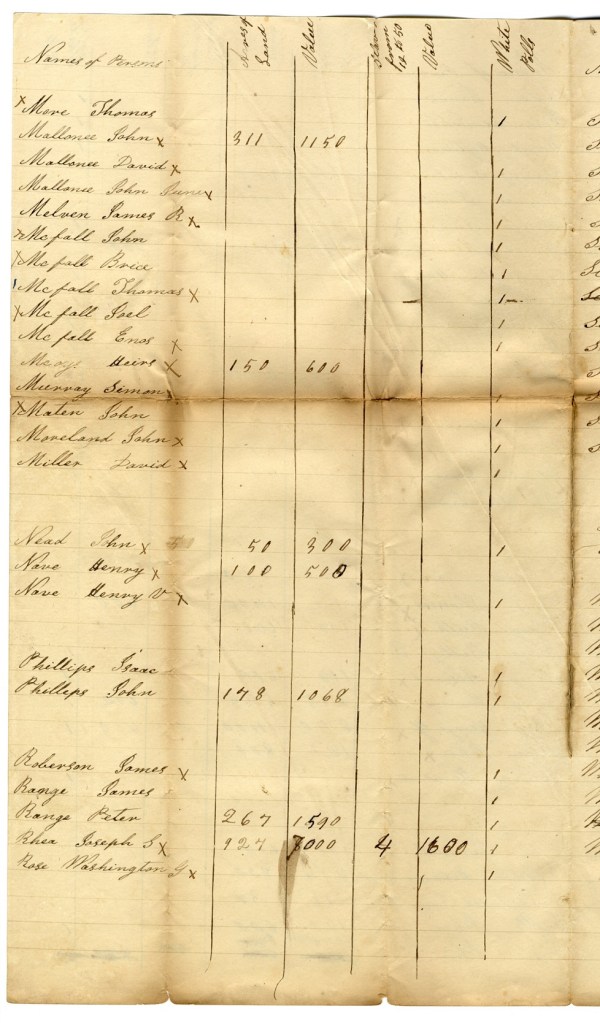 Names of Persons Acres of Land Value Slaves from 12 to 50 Value White Polls
x More Thomas 1
Mallonee John x 311 1150
Mallonee David x 1
Mallonee John x 1
Melven James R x 1
x Mcfall John 1
x Mcfall Brice 1
Mcfall Thomas x — 1—
x Mcfall Joel 1
Mcfall Enos x 1
Heirs x 150 600
Murray Simon x 1
x Maten John 1
Moreland John x 1
Miller David x 1
Nead John x 50 50 300 1
Nave Henry x 100 500
Nave Henry V x 1
Phillips Isaac 1
Phillips John 178 1068 1
Roberson James x 1
Range James 1
Range Peter 267 1590 1
Rhea Joseph S x 927 7000 4 1600 1
Rose Washington G x 1